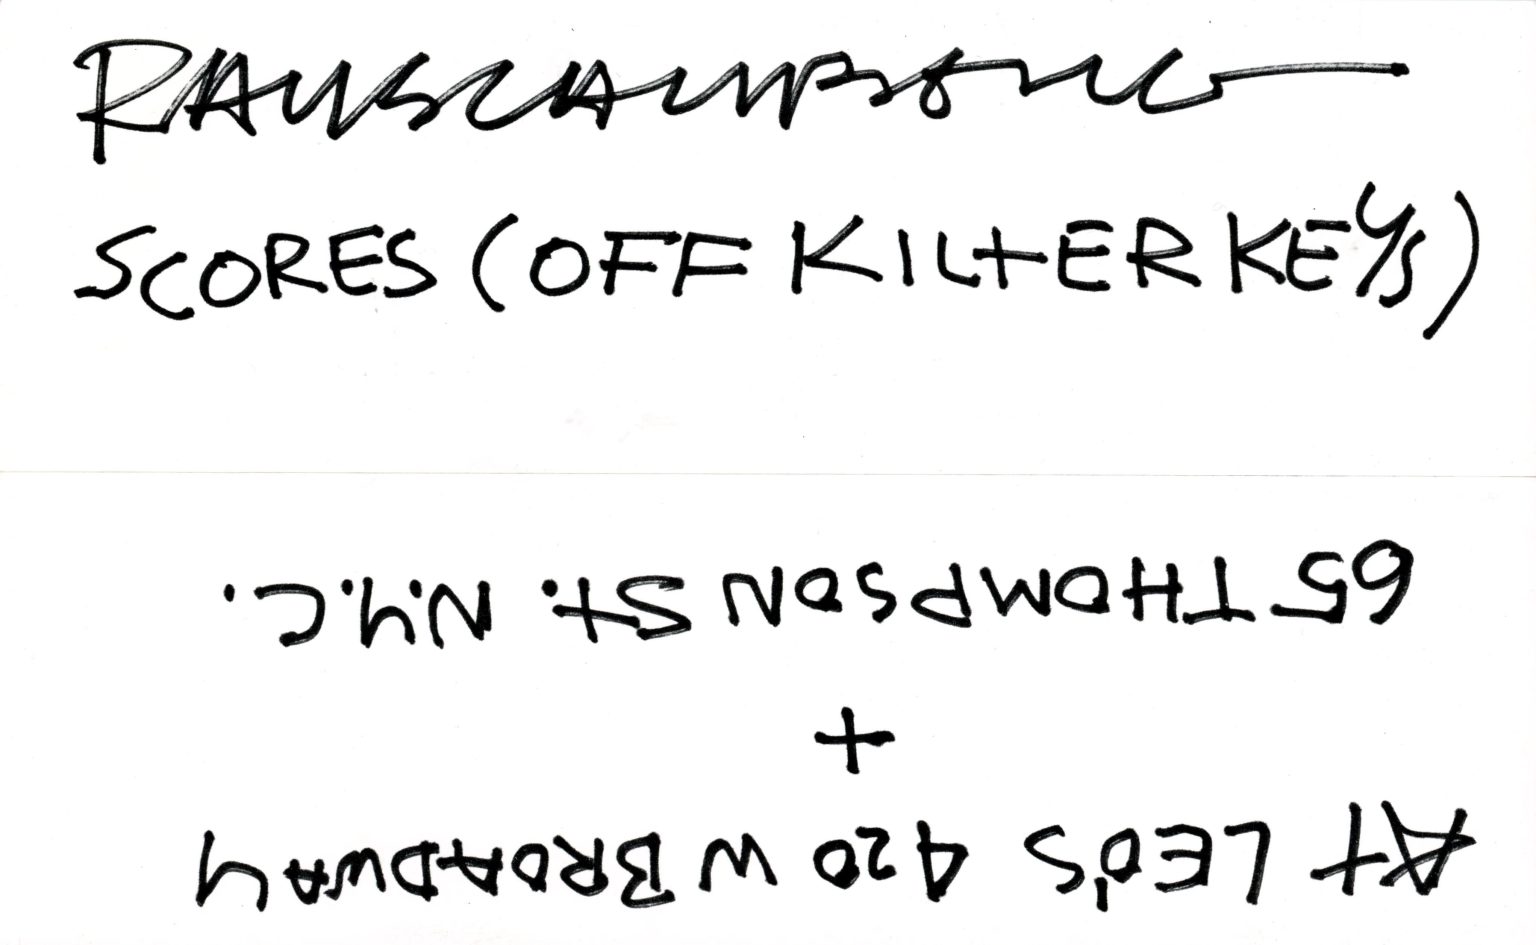 RAUSCHENBERG
SCORES (OFF KILTER KEYS)
AT LEO'S 420 W BROADWAY
+
65 THOMPSON St. N.Y.C.